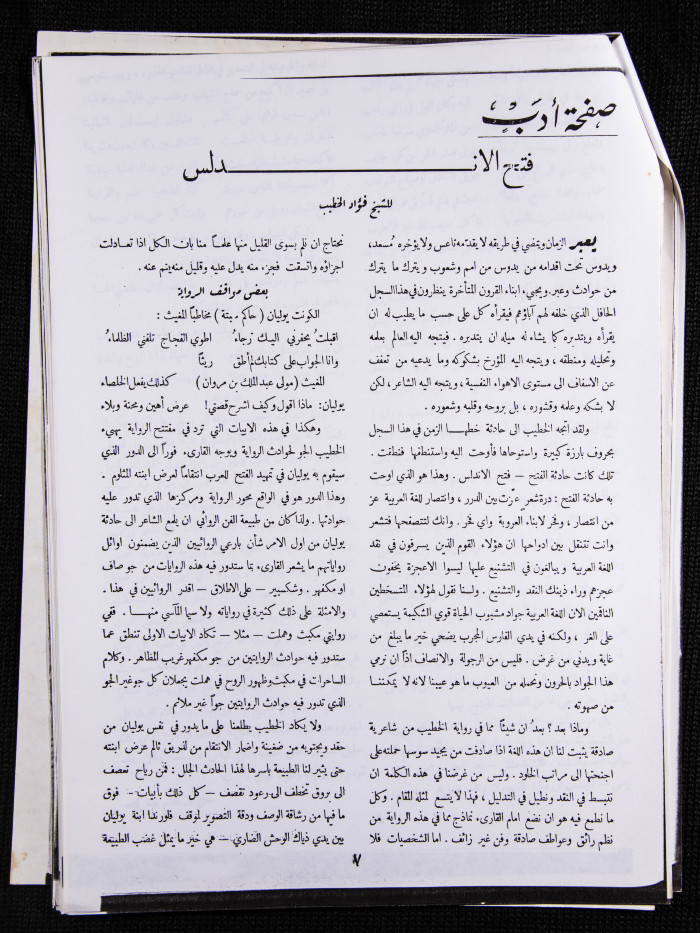 صفحة أدب
فتح الانـــــدلس
للشيخ فؤاد الخطيب
يعبر الزمان ويمضي في طريقه لا يقدمه تاعس ولا يؤخره مسعد،
ويدوس تحت اقدامه من يدوس من امم وشعوب ويترك ما يترك
من حوادث وعبر. ويجيء ابناء القرون المتأخرة ينظرون في هذا السجل
الحافل الذي خلفه لهم آباؤهم فيقرأه كل على حسب ما يطيب له ان
يقرأه ويتدبره كما يشاء له ميله ان يتدبره . فيتجه اليه العالم بعلمه
وتحليله ومنطقه ، ويتجه اليه المؤرخ بشكوكه وما يدعيه من تعفف
عن الاسفاف الى مستوى الاهواء النفسية ، ويتجه اليه الشاعر ، لكن
لا بشكه وعلمه وقشوره ، بل بروحه وقلبه وشعوره .
ولقد اتجه الخطيب الى حادثة خطهـا الزمن في هذا السجل
بحروف بارزة كبيرة واستوحاها فأوحت اليه واستنطقها فنطقت .
تلك كانت حادثة الفتح – فتح الاندلس . وهذا هو الذي اوحت
به حادثة الفتح : درة شعر عزّت بين الدرر ، وانتصار للغة العربية عز
من انتصار ، وفخر لابناء العروبة واي فخر . وانك لتتصفحها فتشعر
وانت تتنقل بين ادواحها ان هؤلاء القوم الذين يسرفون في نقد
اللغة العربية ويبالغون في التشنيع عليها ليسوا الاعجزة يخفون
عجزهم وراء ذينك النقد والتشنيع . ولسنا نقول لهؤلاء المتسخطين
الناقمين الان اللغة العربية جواد مشبوب الحياة قوي الشكيمة يستعصي
على الغر ، ولكنه في يدي الفارس المجرب يضحي خير ما يبلغ من
غاية ويدني من غرض . فليس من الرجولة والانصاف اذاً ان نرمي
هذا الجواد بالحرون ونحمله من العيوب ما هو عيبنا لانه لا يمكننـا
من صهوته .
وماذا بعد ؟ بعد ان شيئاً مما في رواية الخطيب من شاعرية
صادقة يثبت لنا ان هذه اللغة اذا صادفت من يجيد سوسها حملته على
اجنحتها الى مراتب الخلود . وليس من غرضنا في هذه الكلمة ان
نتبسط في النقد ونطيل في التدليل ، فهذا لا يتسع لمثله المقام . وكل
ما نطمع فيه هو ان نضع امام القارىء نماذج مما في هذه الرواية من
نظم رائق وعواطف صادقة وفن غير زائف . اما الشخصيات فلا
نحتاج ان نلم بسوى القليل منها علمـاً منا بان الكل اذا تعـادلت
اجزاؤه واتسقت فجزء منه يدل عليه وقليل منه ينم عنه .
بعض مواقف الرواية
الكونت يوليان ( حاكم سبتة ) مخاطباً المغيث :
اقبلتُ يحفزني اليـك رجاءُ اطوي الفجاج تلفني الظلماءُ
وانا الجواب على كتابك لم أطق ريثاً
المغيث (مولى عبد الملك بن مروان) كذلك يفعل الخلصاء
يوليان: ماذا اقول وكيف اشرح قصتي! عرض أهين ومحنة وبلاء
وهكذا في هذه الابيات التي ترد في مفتتح الرواية يهيء
الخطيب الجو لحوادث الرواية ويوجه القارىء فوراً الى الدور الذي
سيقوم به يوليان في تمهيد الفتح للعرب انتقاماً لعرض ابنته المثلوم .
وهذا الدور هو في الواقع محور الرواية ومركزها الذي تدور عليه
حوادثها . ولذا كان من طبيعة الفن الروائي ان يلمع الشاعر الى حادثة
يوليان من اول الامر شأن بارعي الروائيين الذين يضمنون اوائل
رواياتهم ما يشعر القارىء بما ستدور فيه هذه الروايات من جو صاف
او مكفهر . وشكسبير – على الاطلاق – اقدر الروائيين في هذا .
والامثلة على ذلك كثيرة في رواياته ولا سيما المآسي منهـا . ففي
روايتي مكبث وهملت – مثلا – تكاد الابيات الاولى تنطق عما
ستدور فيه حوادث الروايتين من جو مكفهر غريب المظاهر . وكلام
الساحرات في مكبث وظهور الروح في هملت يجعلان كل جو غير الجو
الذي تدور فيه حوادث الروايتين جواً غير ملائم .
ولا يكاد الخطيب يطلعنا على ما يدور في نفس يوليان من
حقد ويجتويه من ضغينة واضمار الانتقام من لذريق ثالم عرض ابنته
حتى يثير لنا الطبيعة باسرها لهذا الحادث الجلل : فمن رياح تعصف
الى بروق تخطف الى رعود تقصف – كل ذلك بأبيات – فوق
ما فيها من رشاقة الوصف ودقة التصوير لموقف فلورندا ابنة يوليان
بين يدي ذياك الوحش الضاري – هي خير ما يمثل غضب الطبيعة
٧